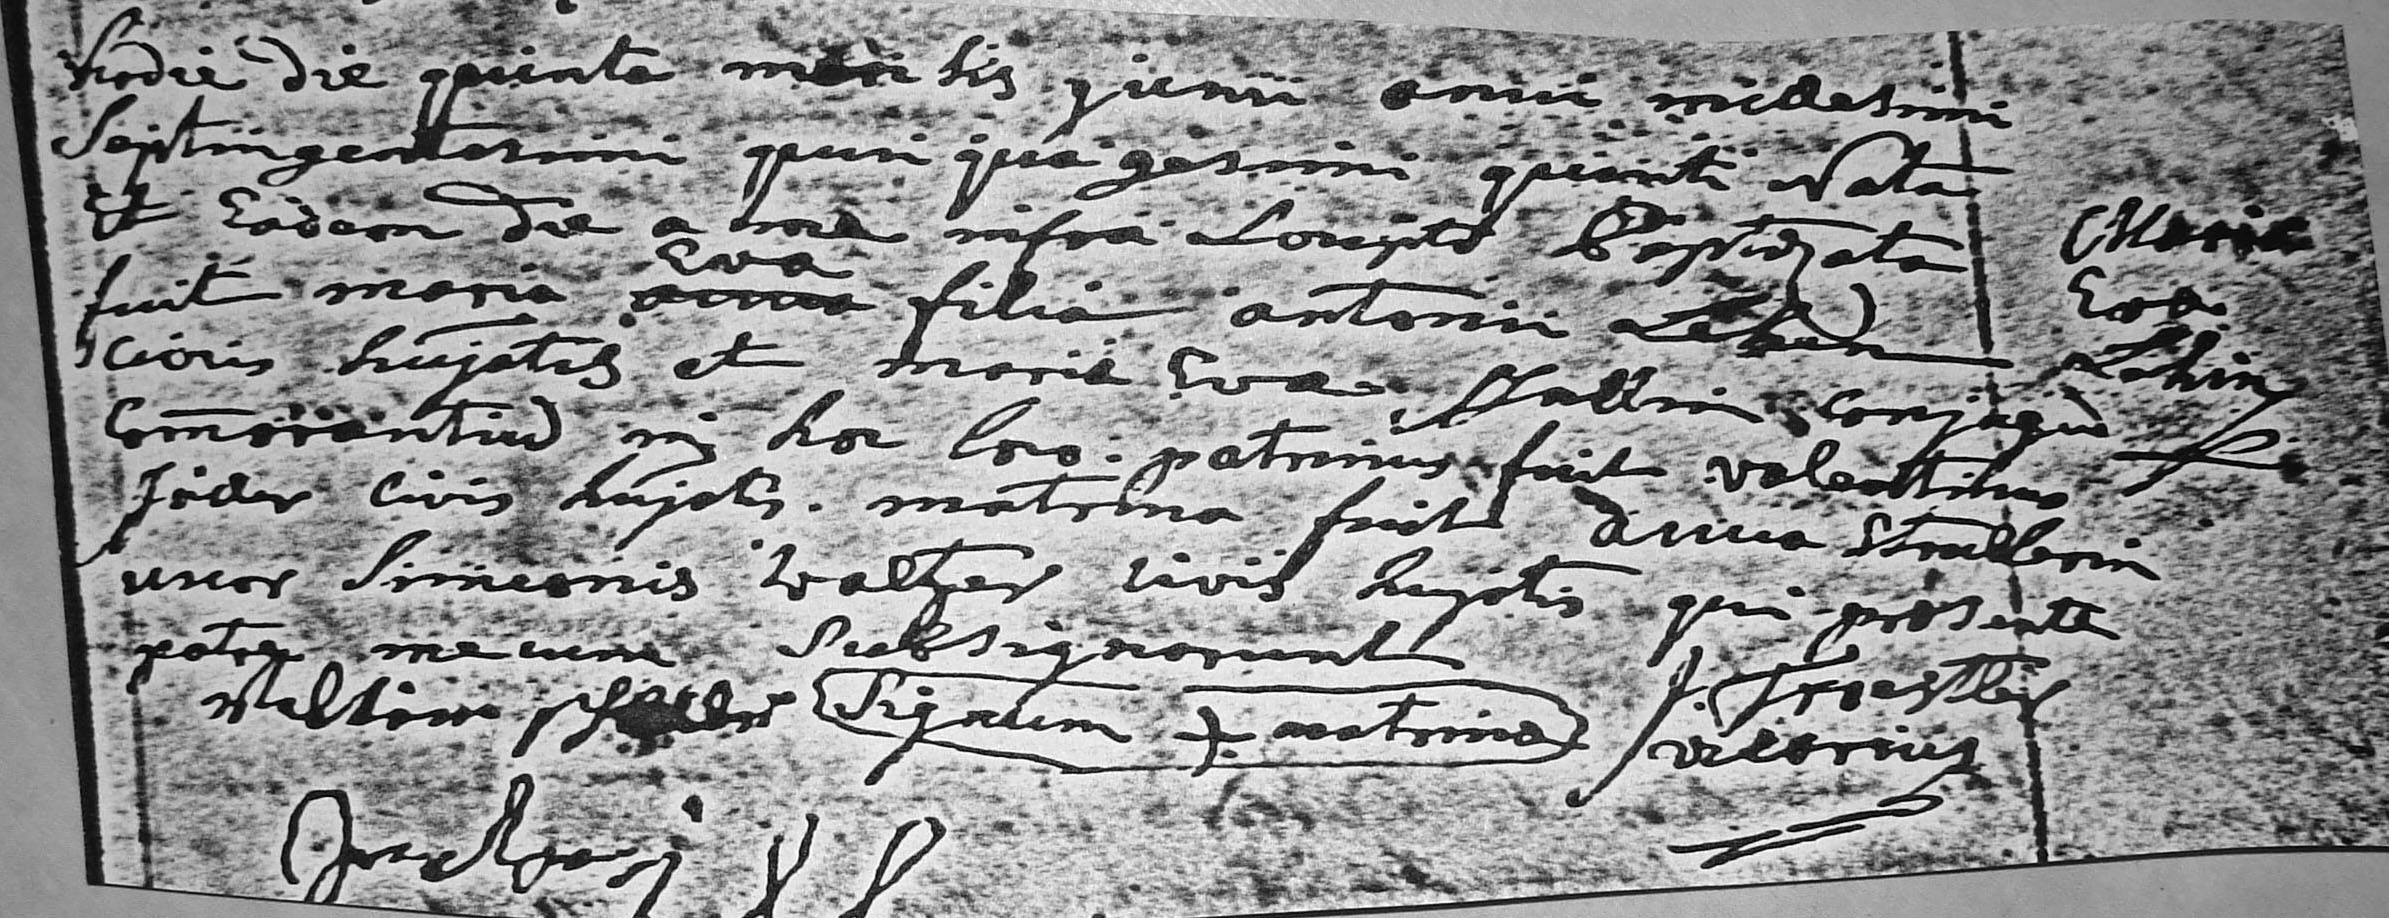 hodie die quinta mensis junii anni millesimi
septingentesimi quinquagesimi quinti nata
et eadem die a me infra scripto baptizata
fuit maria Eva anna filia antonii Lehen
civis hujatis et maria Eva Stallin conjugū
comōrantiū in hoc loco. patrinus fuit valentinus
civis hujatis. matrina fuit anna Stralerin
uxor Simeonis Waltzer civis hujatis qui presente
patre mecum subsignarunt
Maria
Eva
Lehin
Veltin
Signum + matrina
J. Troestler
vicarius